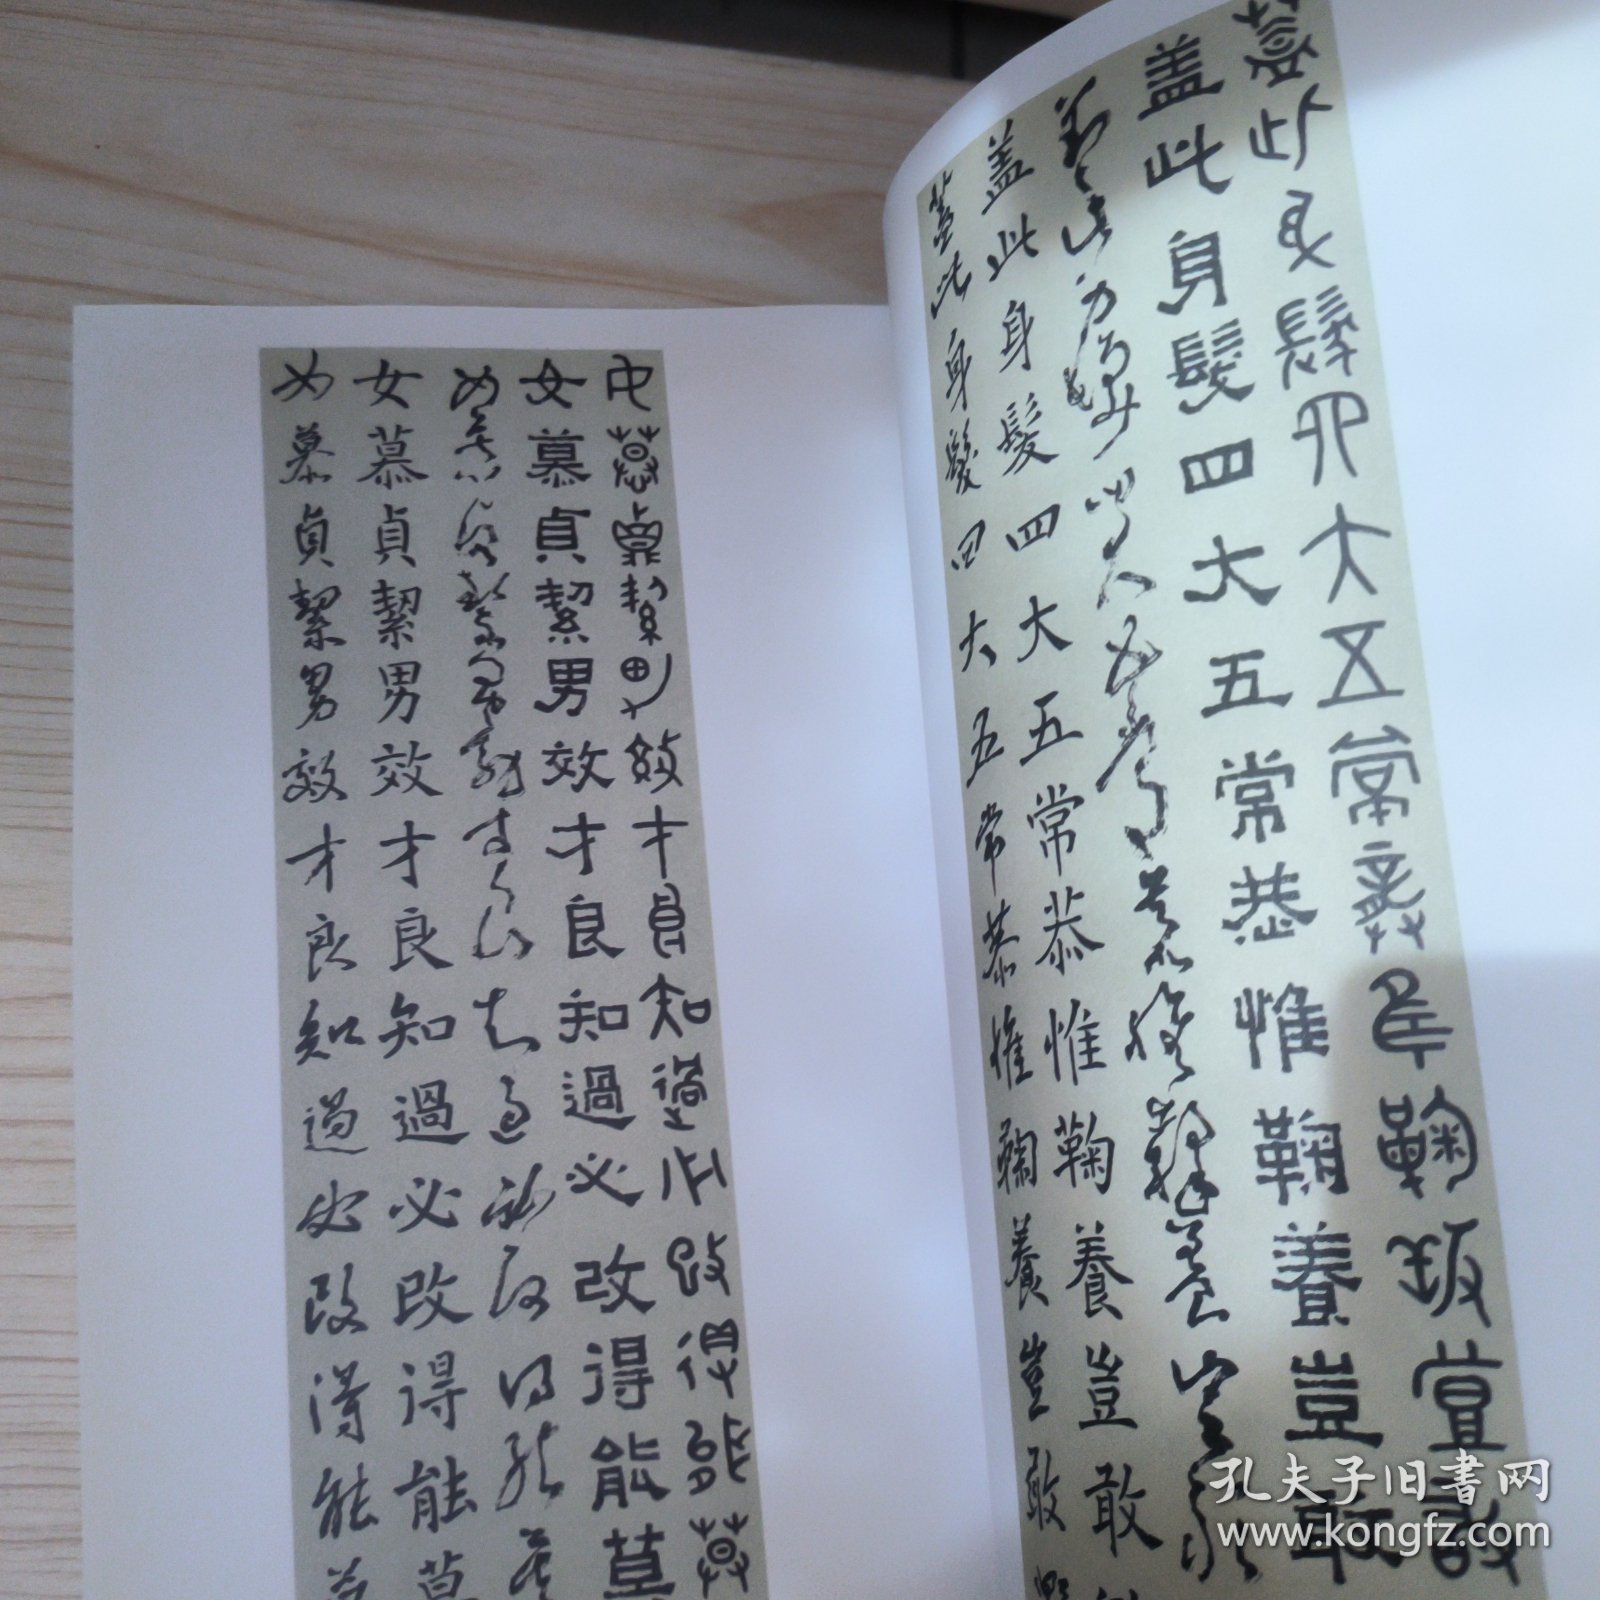 蓋此身髮四大五常恭惟鞠養豈敢
盖此身髮四大五常恭惟鞠養豈敢
蓋此身髮四大五常恭惟鞠養豈敢
盖此身髮四大五常恭惟鞠養豈敢
蓋此身髮四大五常恭惟鞠養豈敢
女慕貞絜男效才良知過必改得能莫
女慕貞絜男效才良知過必改得能莫
女慕貞絜男效才良知過必改得能莫
女慕貞絜男效才良知過必改得能莫
女慕貞絜男效才良知過必改得能莫
孔夫子旧书网
www.kongfz.com